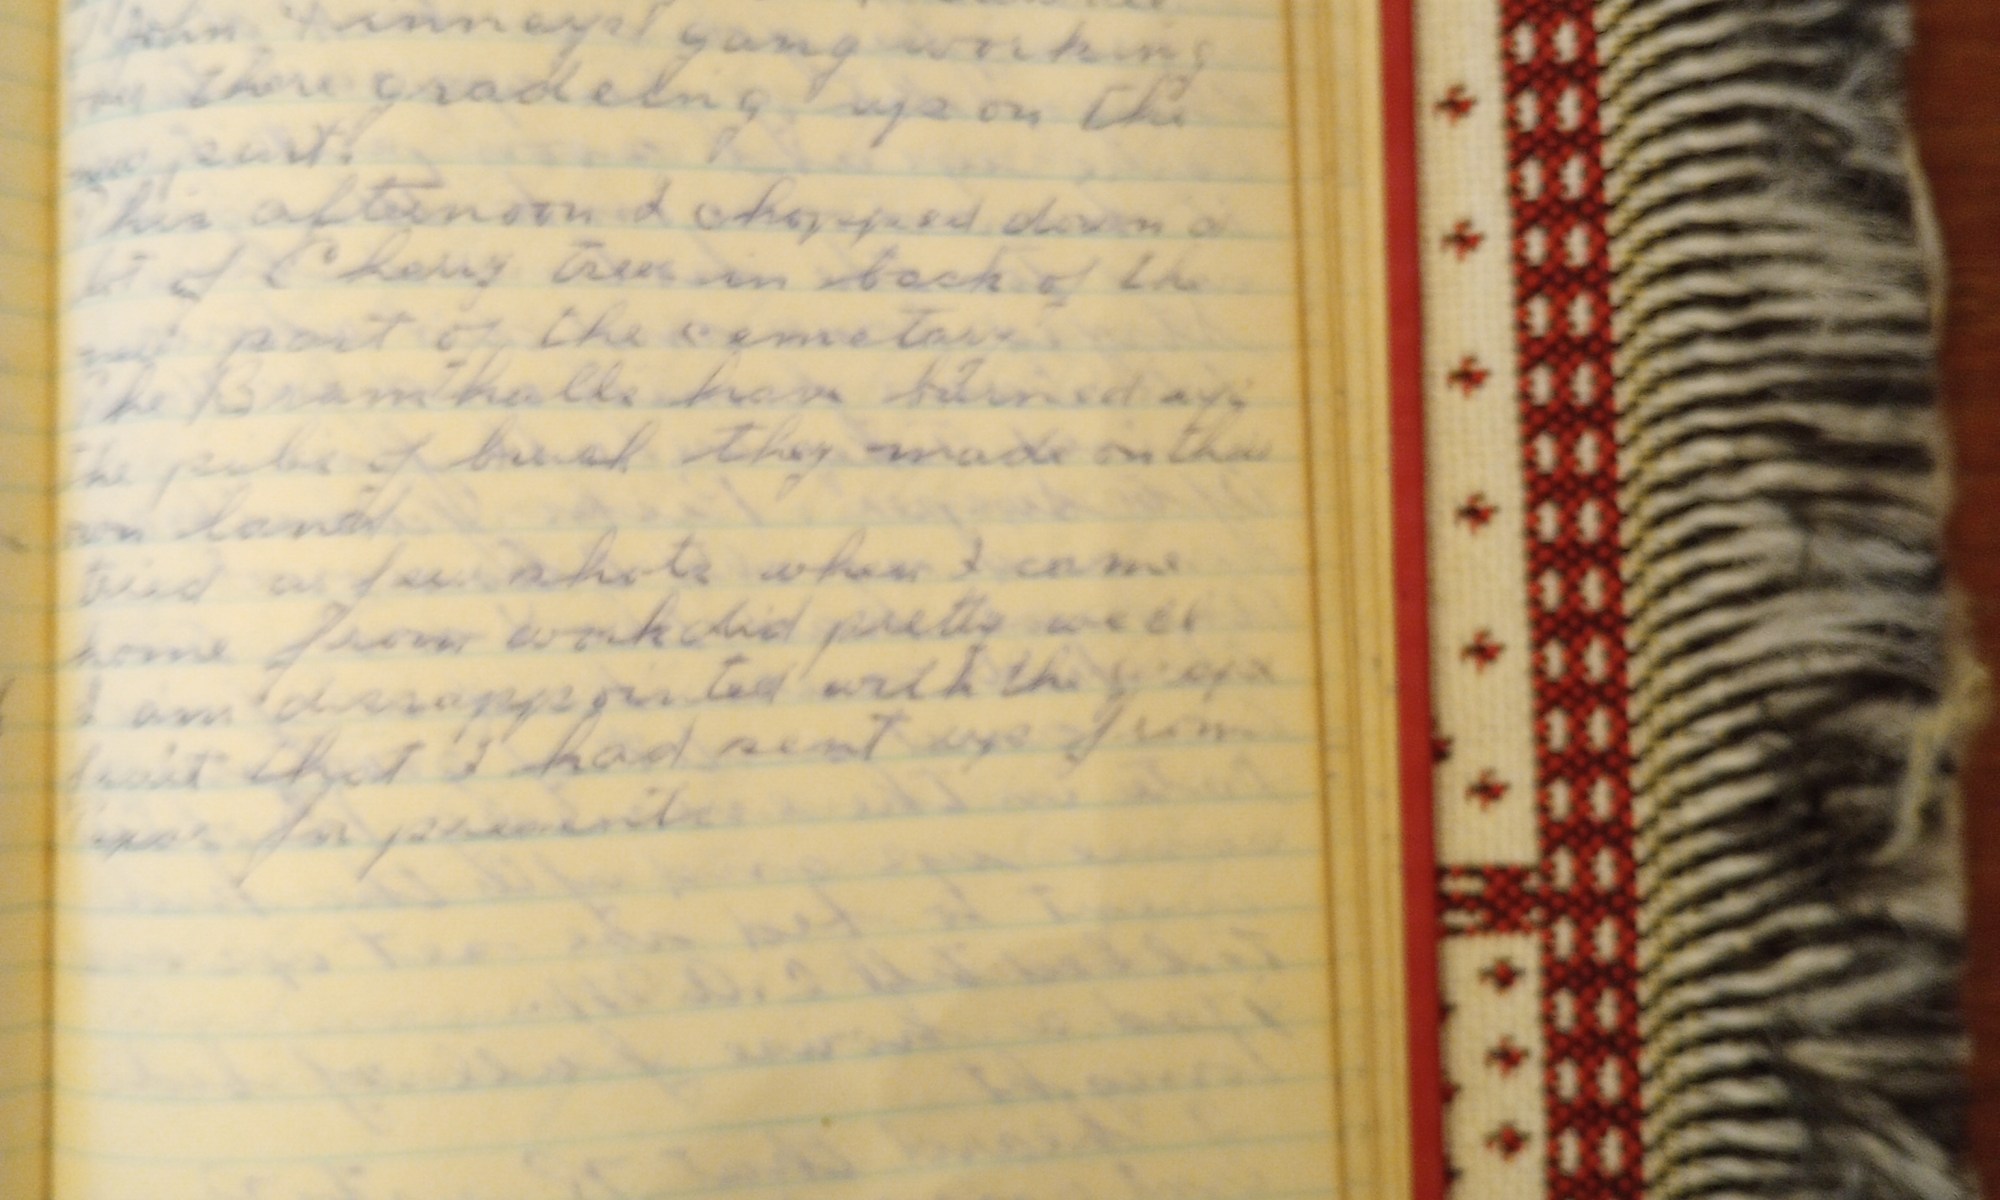 John Kinneys gang working
there gradeing up on the
new part.
This afternoon I chopped down a
lot of Cherry trees in back of the
new part of the cemetary.
The Bramthalls have burned up
the piles of brush they made on their
own land.
tried a few shots when I came
home from work did pretty well
I am dissappointed with the grape
fruit that I had sent up from
for presents